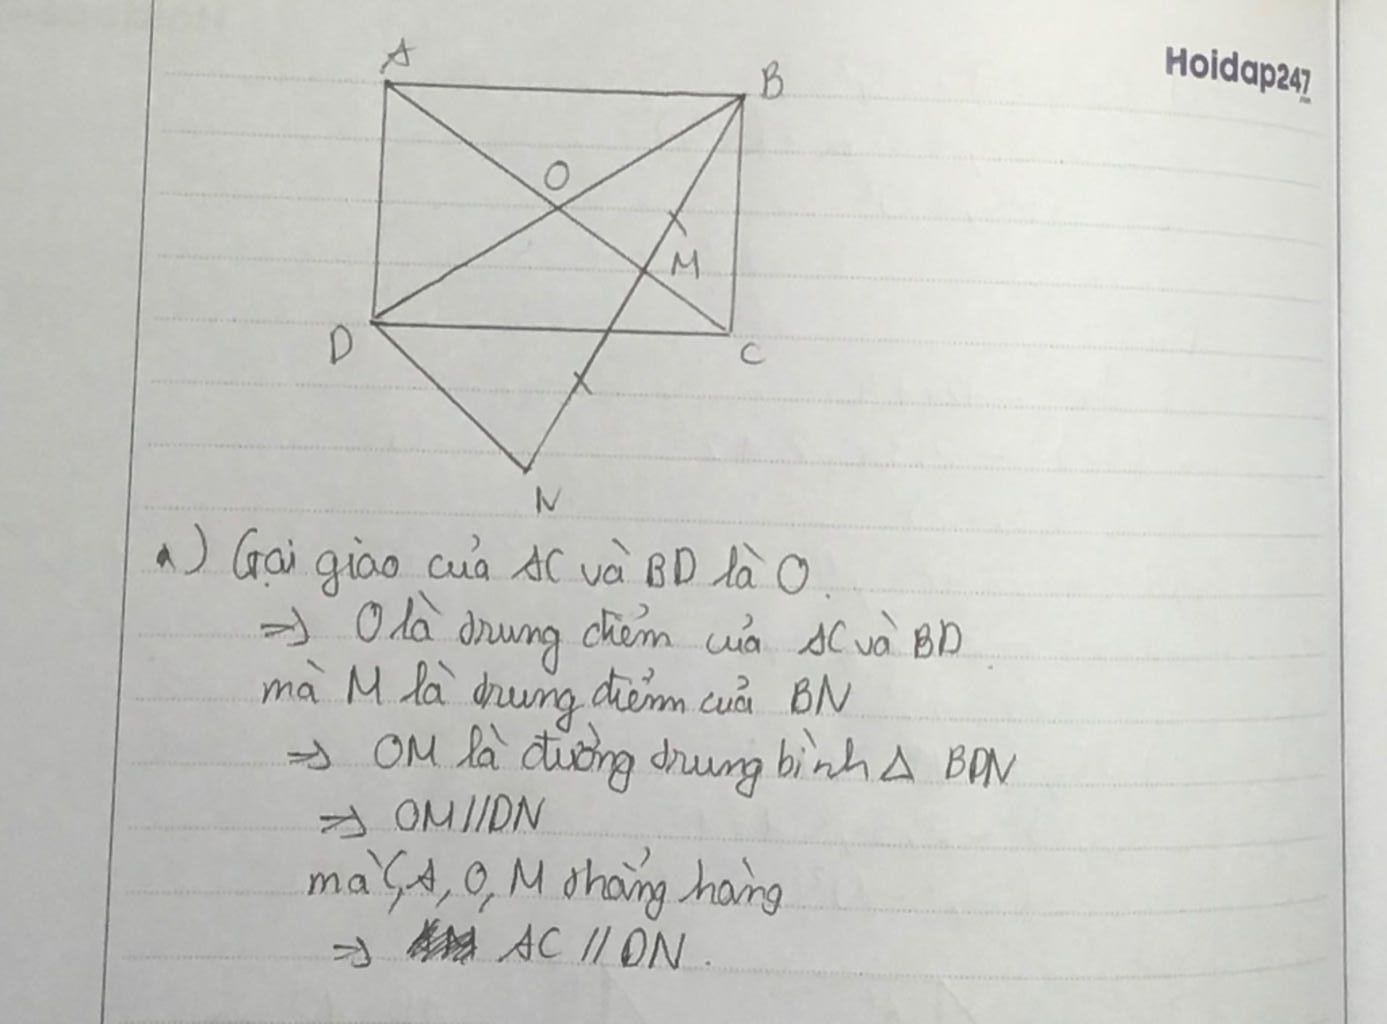 Hoidap247
A
B
O
M
D
C
N
a) Gọi giao của AC và BD là O.
=> O là trung điểm của AC và BD.
mà M là trung điểm của BN
=> OM là đường trung bình Δ BDN
=> OM//DN
mà C, A, O, M thẳng hàng
=> AC // DN.